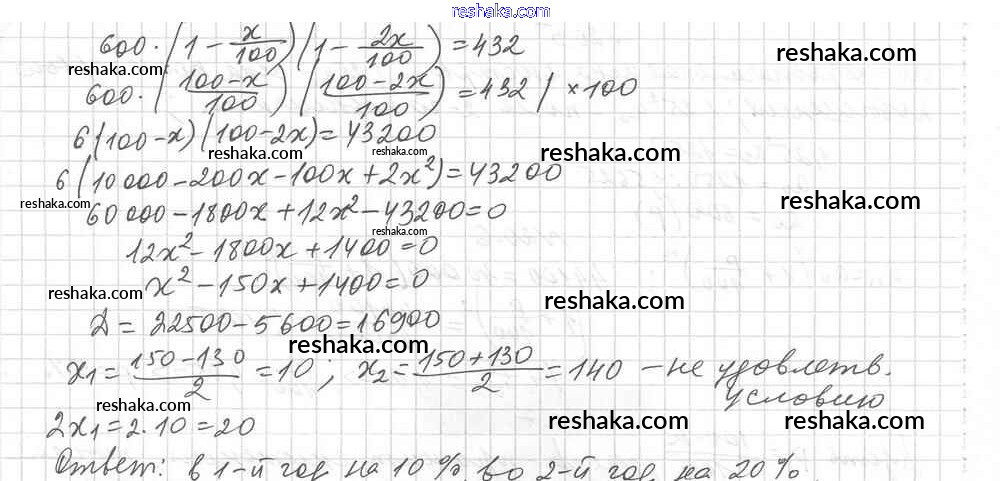 reshaka.com
600·(1 - x/100)(1 - 2x/100) = 432
reshaka.com
reshaka.com
600·((100-x)/100)((100-2x)/100) = 432 | ×100
6(100-x)(100-2x) = 43200
reshaka.com
reshaka.com
reshaka.com
6(10000-200x-100x+2x²) = 43200
reshaka.com
reshaka.com
60000-1800x+12x²-43200=0
reshaka.com
12x²-1800x+1400=0
x²-150x+1400=0
reshaka.com
reshaka.com
D = 22500-5600=16900
reshaka.com
x₁ = (150-130)/2 = 10; x₂ = (150+130)/2 = 140 - не удовлетв.
условию
reshaka.com
2x₁=2·10=20
reshaka.com
reshaka.com
Ответ: в 1-й год на 10%, во 2-й год на 20%